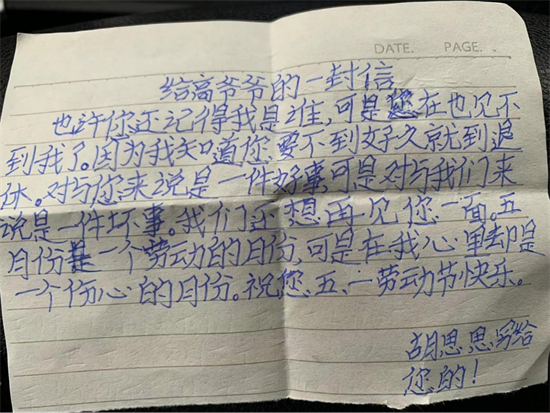 DATE. PAGE.
给高爷爷的一封信
也许你还记得我是谁,可是您在也见不
到我了。因为我知道您要不到好久就到退
休。对与您来说是一件好事,可是对与我们来
说是一件坏事。我们还想再见您一面。五
月份是一个劳动的月份,可是在我心里却是
一个伤心的月份。祝,您,五、一劳动节快乐。
胡思思写给
您的!